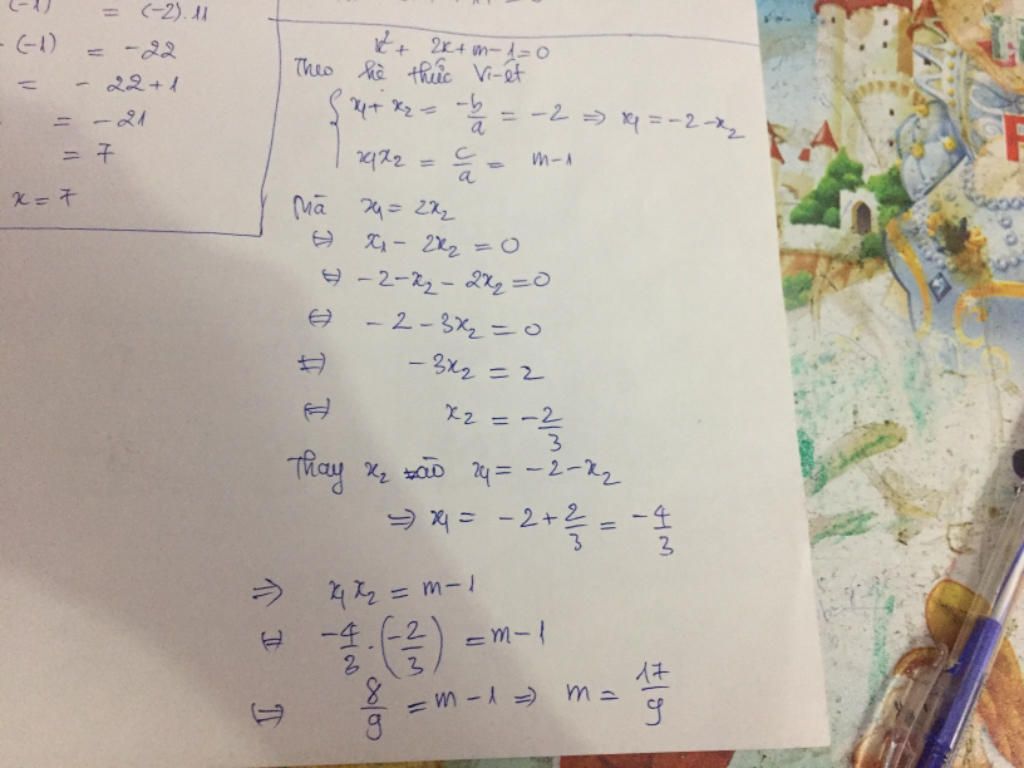 (-1) = (-2).11
(-1) = -22
= -22+1
= -21
= 7
x = 7
x² + 2x + m - 1 = 0
Theo hệ thức Vi-ét
x₁ + x₂ = -b/a = -2 => x₁ = -2 - x₂
x₁x₂ = c/a = m - 1
Mà x₁ = 2x₂
<=> x₁ - 2x₂ = 0
<=> -2 - x₂ - 2x₂ = 0
<=> -2 - 3x₂ = 0
<=> -3x₂ = 2
<=> x₂ = -2/3
Thay x₂ vào x₁ = -2 - x₂
=> x₁ = -2 + 2/3 = -4/3
=> x₁x₂ = m - 1
<=> -4/3 . (-2/3) = m - 1
<=> 8/9 = m - 1 => m = 17/9